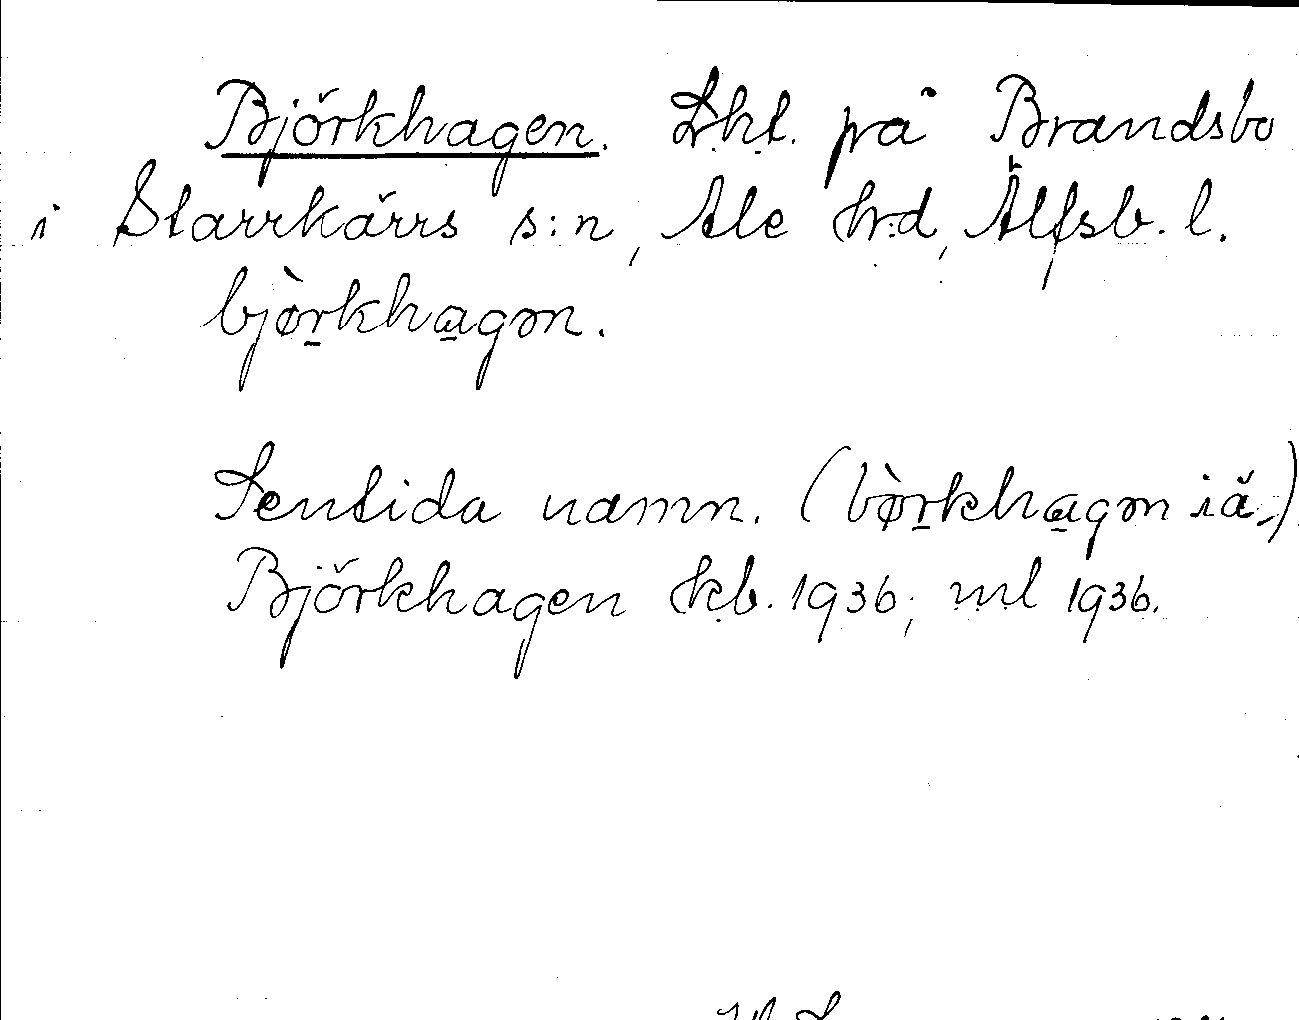 Björkhagen. Lht. på Brandsbo
i Starrkärrs s:n, Ale hrd, Älfsb. l.
bjø̀rkhagən.
Sentida namn. (bø̀rkhagən iä.)
Björkhagen kb. 1936; ml 1936.